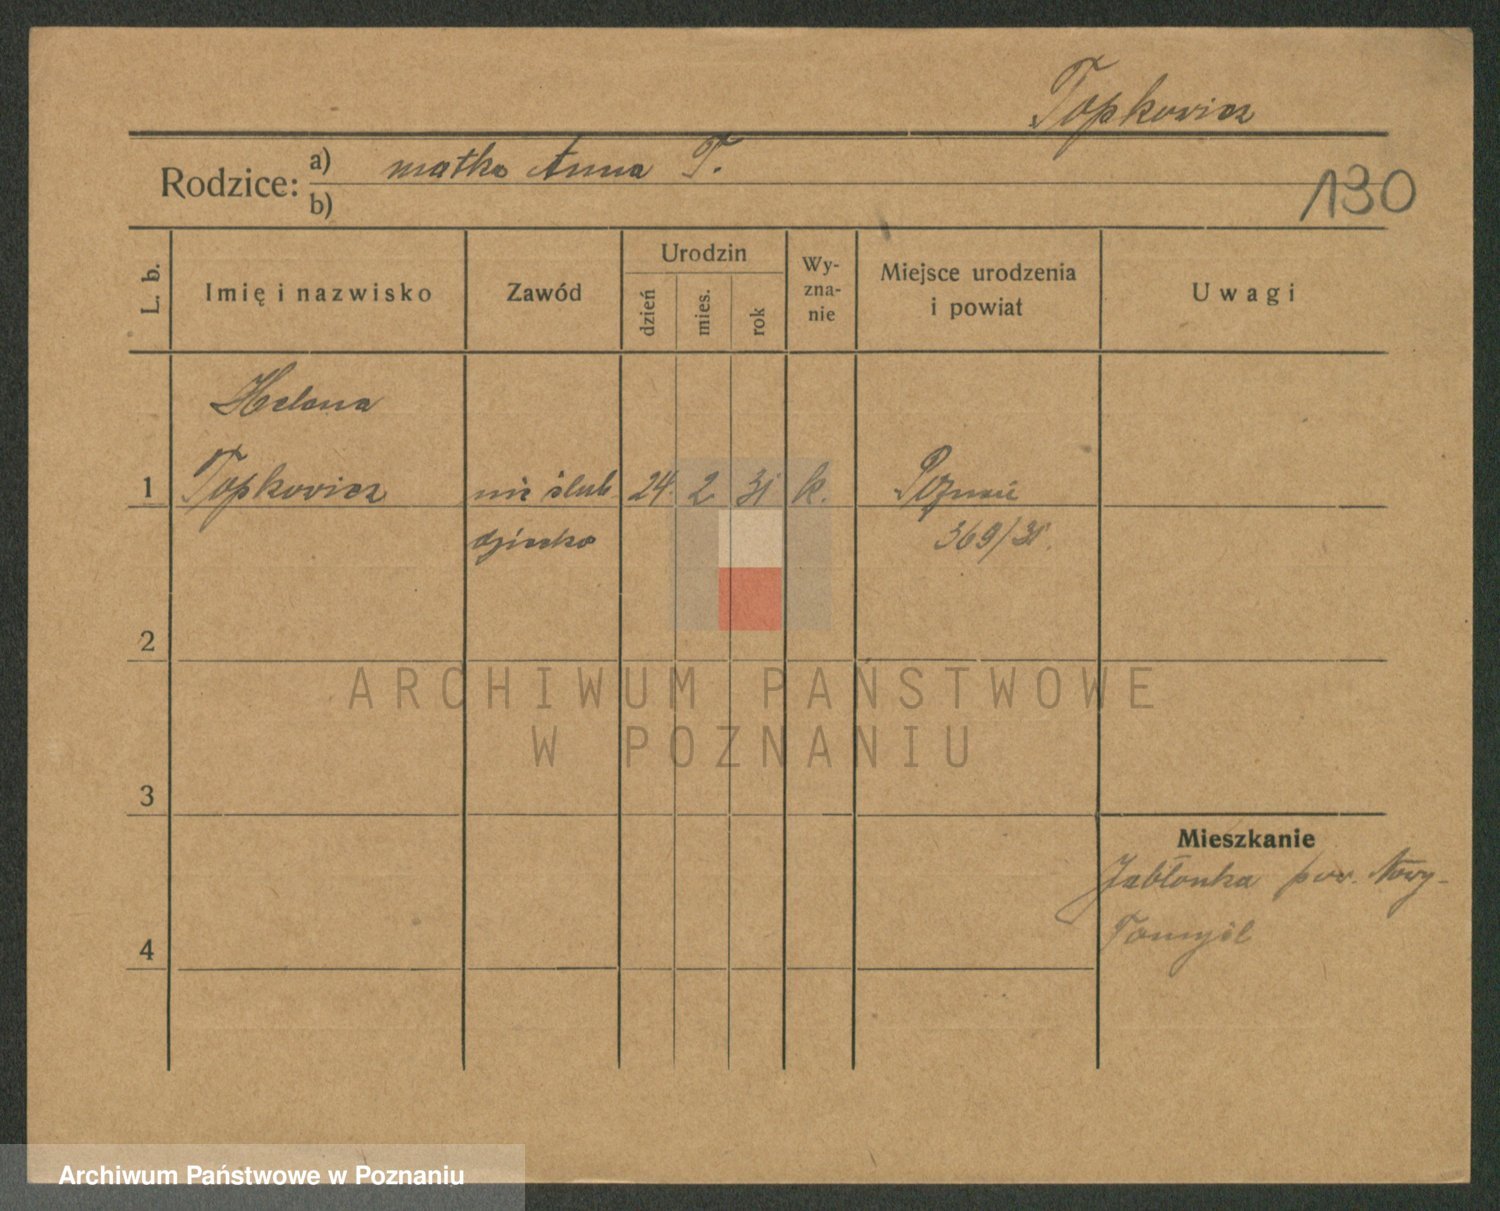 Topkowicz
Rodzice: a) matka Anna T.
130
b)
L. b.
Imię i nazwisko
Zawód
Urodzin
dzień
mies.
rok
Wy-
zna-
nie
Miejsce urodzenia
i powiat
Uwagi
Helena
1 Topkowicz nie ślub 24. 2 31 k. Poznań
dziecko 369/31.
2
ARCHIWUM PAŃSTWOWE
W POZNANIU
3
Mieszkanie
Jabłonka pow. Nowy-
Tomyśl
4
Archiwum Państwowe w Poznaniu